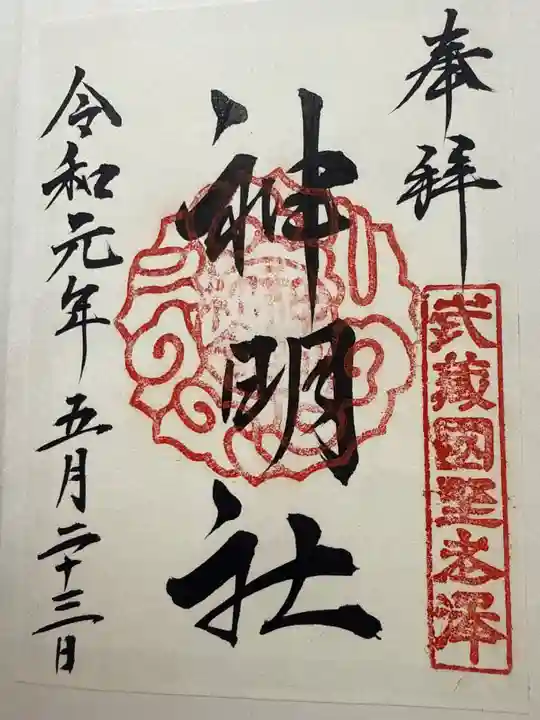 奉拝
武蔵国野老澤
神明社
令和元年五月二十三日